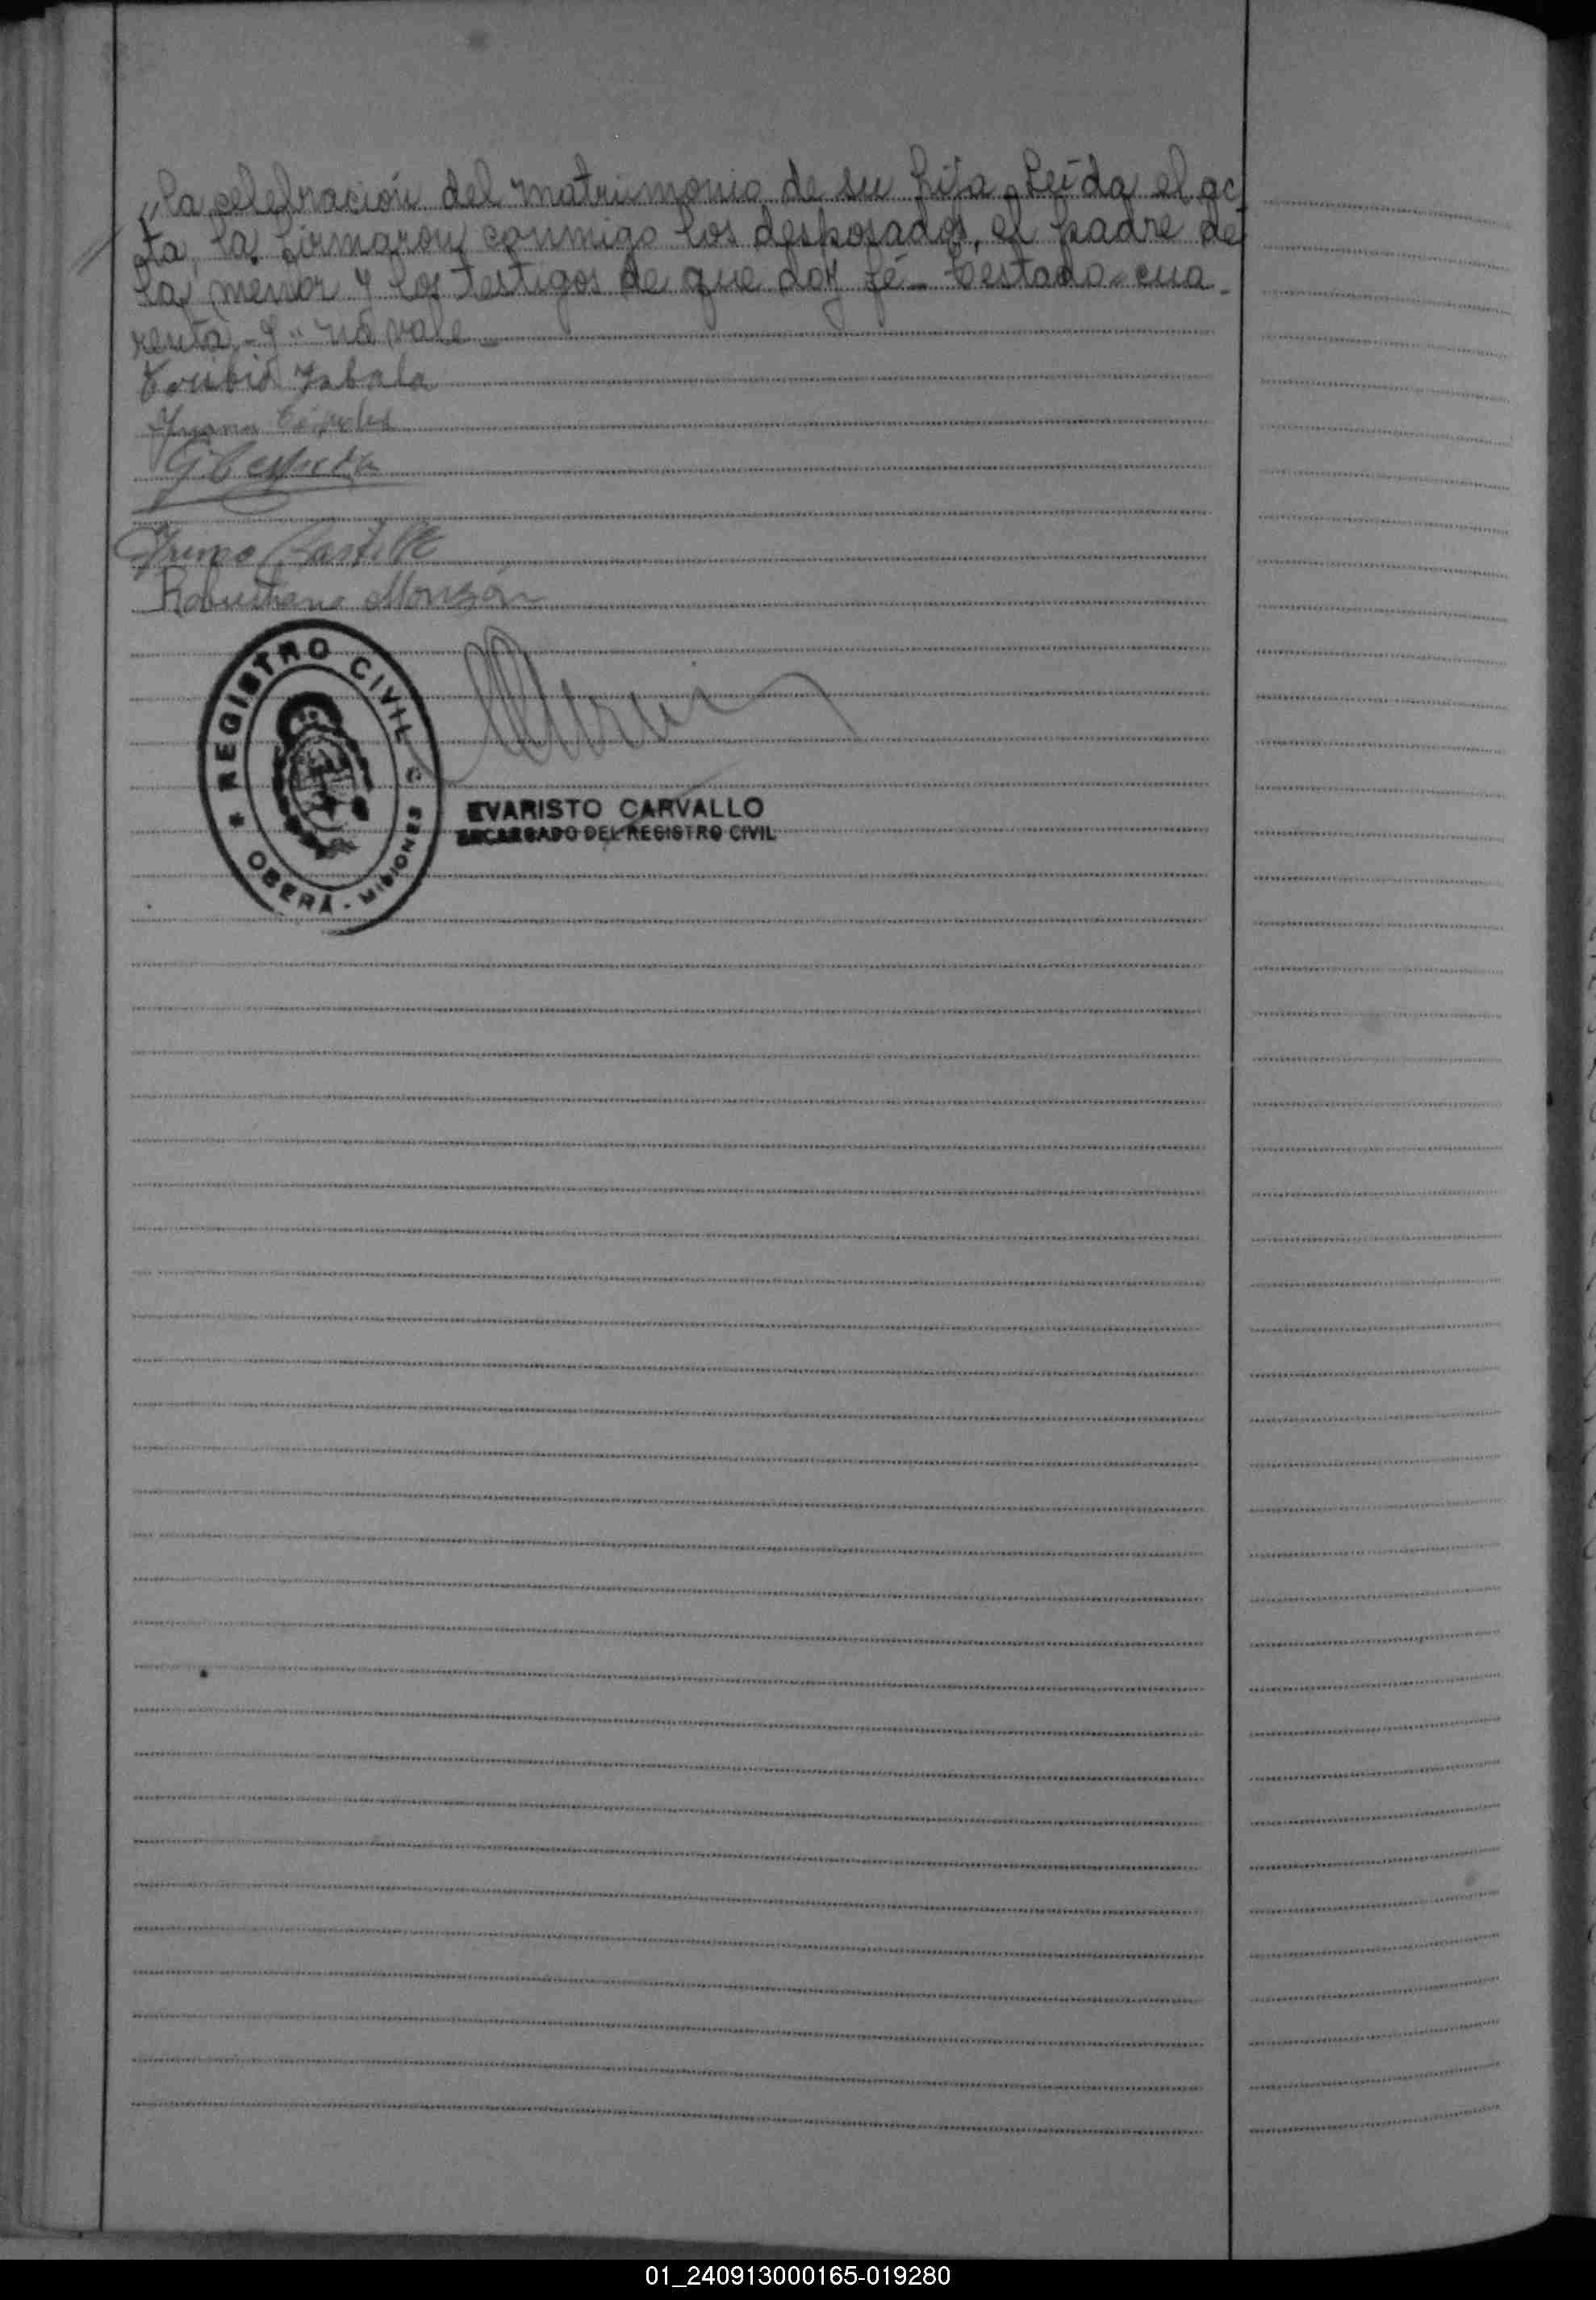 la celebración del matrimonio de su hija. Leída el ac
ta, la firmaron conmigo los desposados, el padre de
la menor y los testigos de que doy fé - Testado - cua
renta - y - no vale -
Toribio Zabala
Juana
Primo Castillo
Robustiano Monzón
REGISTRO CIVIL
OBERÁ - MISIONES
EVARISTO CARVALLO
ENCARGADO DEL REGISTRO CIVIL
01_240913000165-019280